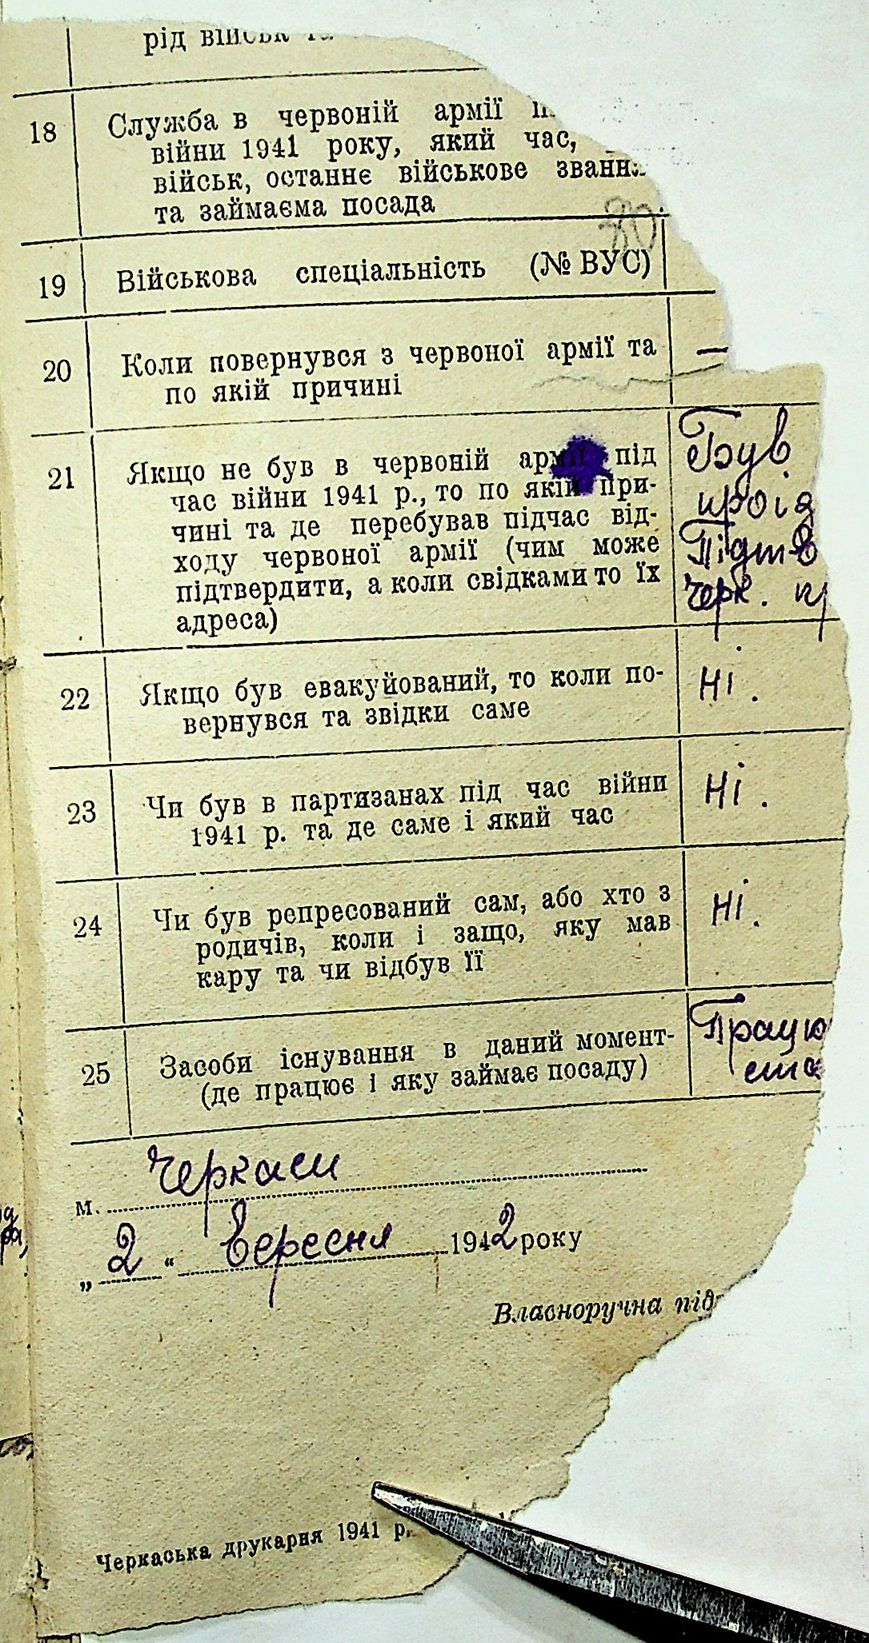 рід військ
18 Служба в червоній армії
війни 1941 року, який час,
військ, останнє військове звання
та займаєма посада
80
19 Військова спеціальність (№ ВУС)
20 Коли повернувся з червоної армії та —
по якій причині
21 Якщо не був в червоній армії під Був
час війни 1941 р., то по якій при- проїз
чині та де перебував підчас від- Підтв
ходу червоної армії (чим може
підтвердити, а коли свідками то їх Черк. п
адреса)
22 Якщо був евакуйований, то коли по- Ні.
вернувся та звідки саме
23 Чи був в партизанах під час війни Ні.
1941 р. та де саме і який час
24 Чи був репресований сам, або хто з Ні.
родичів, коли і защо, яку мав
кару та чи відбув її
25 Засоби існування в даний момент- Працю
(де працює і яку займає посаду) ста
м. Черкаси
„2“ Вересня 1942 року
Власноручна під
Черкаська друкарня 1941 р.